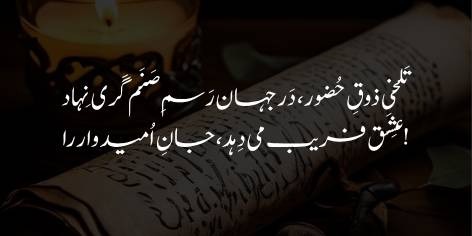 تَلخیِ ذوقِ حُضور، دَر جہان رَسمِ صَنَم گَری نِہاد
عِشَق فریب می دِہد، جانِ اُمیدوار را!